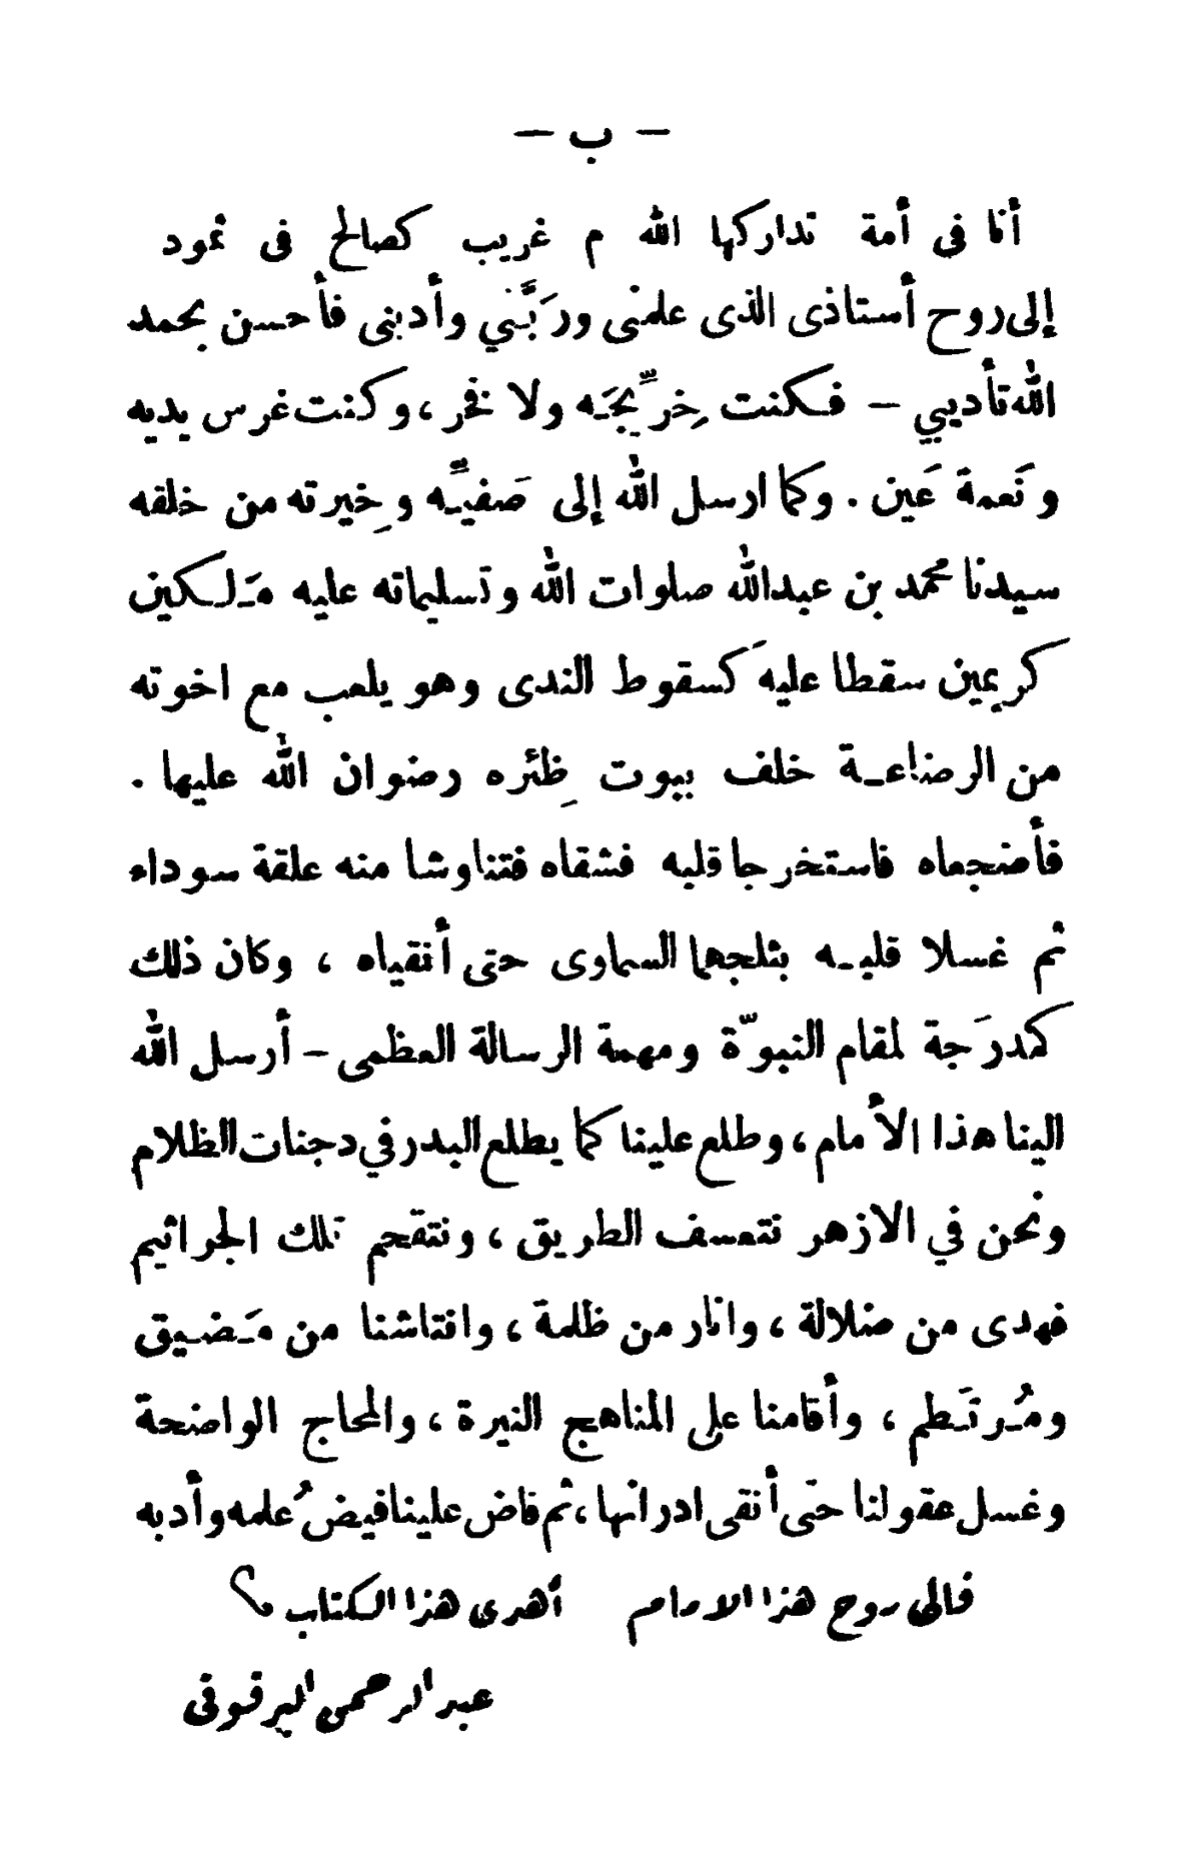 — ب —
أنا فى أمة تداركها الله م غريب كصالح فى ثمود
إلى روح أستاذى الذى علمنى وربَّني وأدبنى فأحسن بحمد
الله تأديبي — فكنت خِرِّيجَه ولا فخر ، وكنت غرس يديه
ونَعمة عَين . وكما ارسل الله إلى صَفيِّه وخِيرته من خلقه
سيدنا محمد بن عبدالله صلوات الله وتسليماته عليه مَلكين
كريمين سقطا عليه كَسقوط الندى وهو يلعب مع اخوته
من الرضاعة خلف بيوت ظِئره رضوان الله عليها .
فأضجعاه فاستخرجا قلبه فشقاه فتناوشا منه علقة سوداء
ثم غسلا قلبه بثلجهما السماوى حتى أنقياه ، وكان ذلك
كمدرَجة لمقام النبوّة ومهمة الرسالة العظمى — أرسل الله
الينا هذا الأمام ، وطلع علينا كما يطلع البدر في دجنات الظلام
ونحن في الازهر نتعسف الطريق ، ونتقحم تلك الجراثيم
فهدى من ضلالة ، وانار من ظلمة ، وانتاشنا من مَضيق
ومُرتَطم ، وأقامنا على المناهج النيرة ، والمحاج الواضحة
وغسل عقولنا حتى أنقى ادرانها ، ثم فاض علينا فيضُ علمه وأدبه
فالى روح هذا الامام أهدى هذا الكتاب
عبد الرحمن البرقوقى